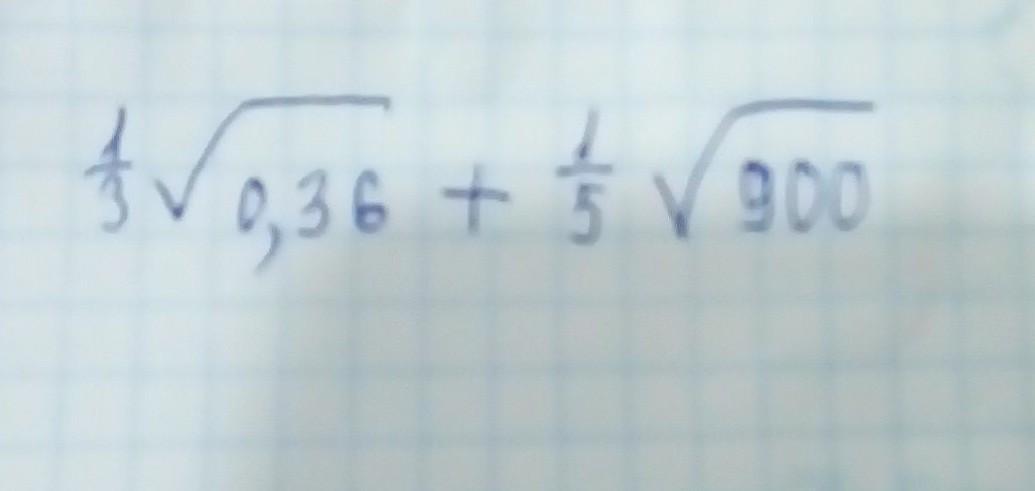 1/3 √0,36 + 1/5 √900